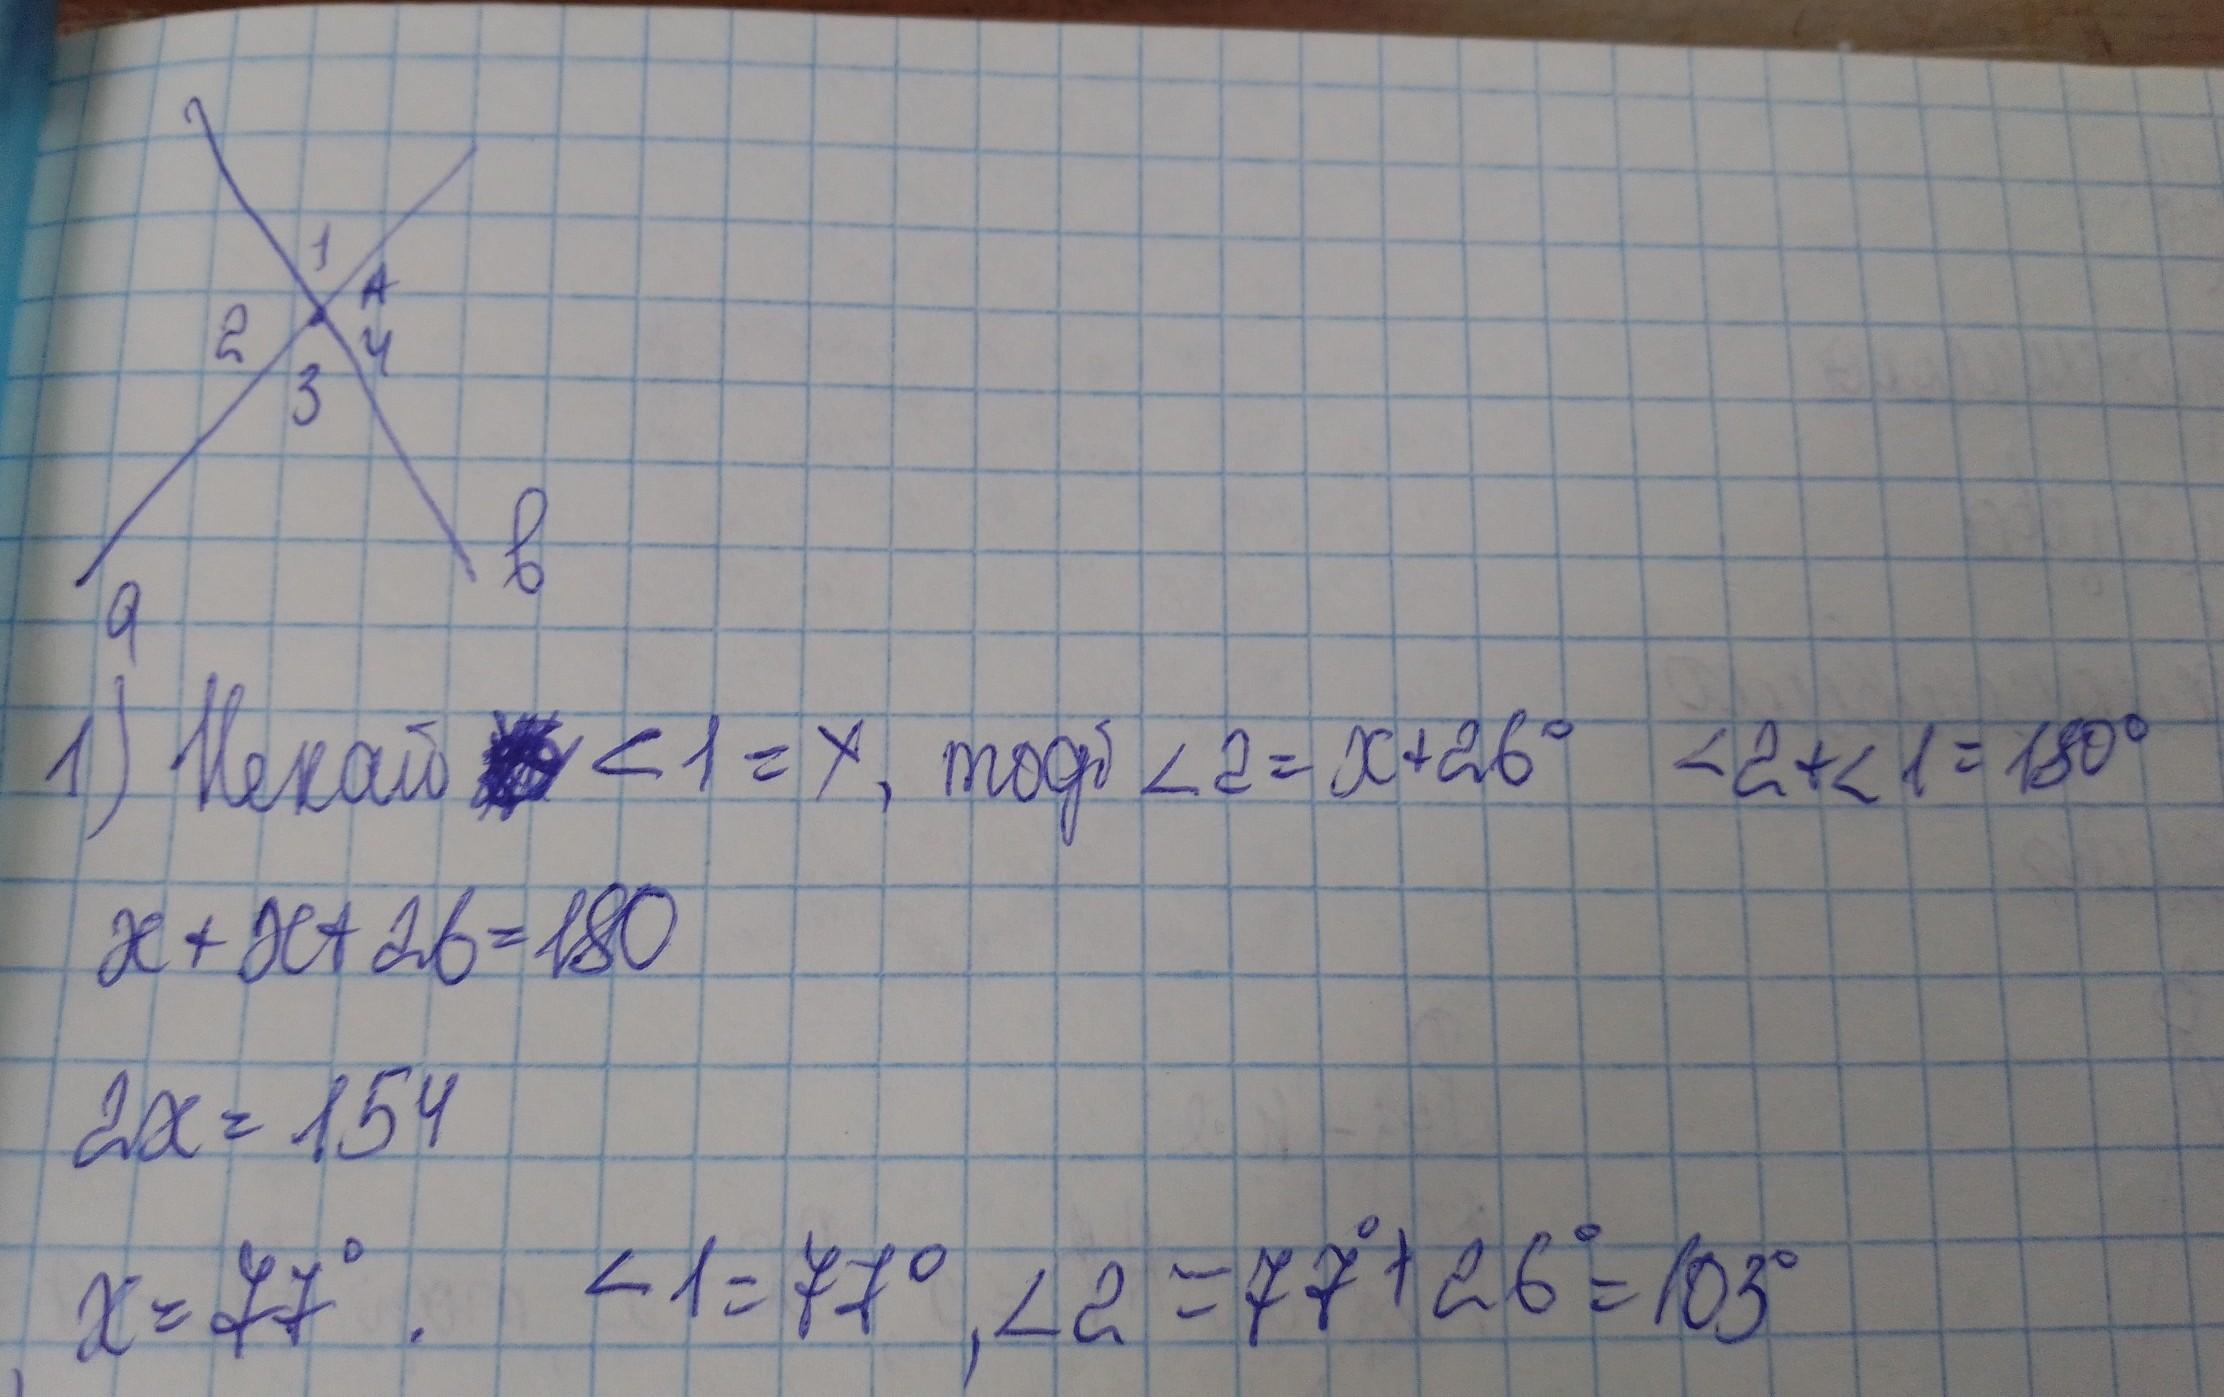 1
A
2
4
3
a b
1) Нехай <1 = x, тоді <2 = x+26° <2+<1=180°
x + x + 26 = 180
2x = 154
x = 77°. <1 = 77°, <2 = 77°+26° = 103°